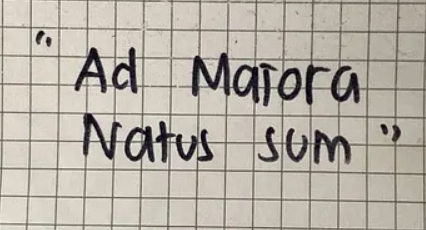 "Ad Maiora
Natus sum"